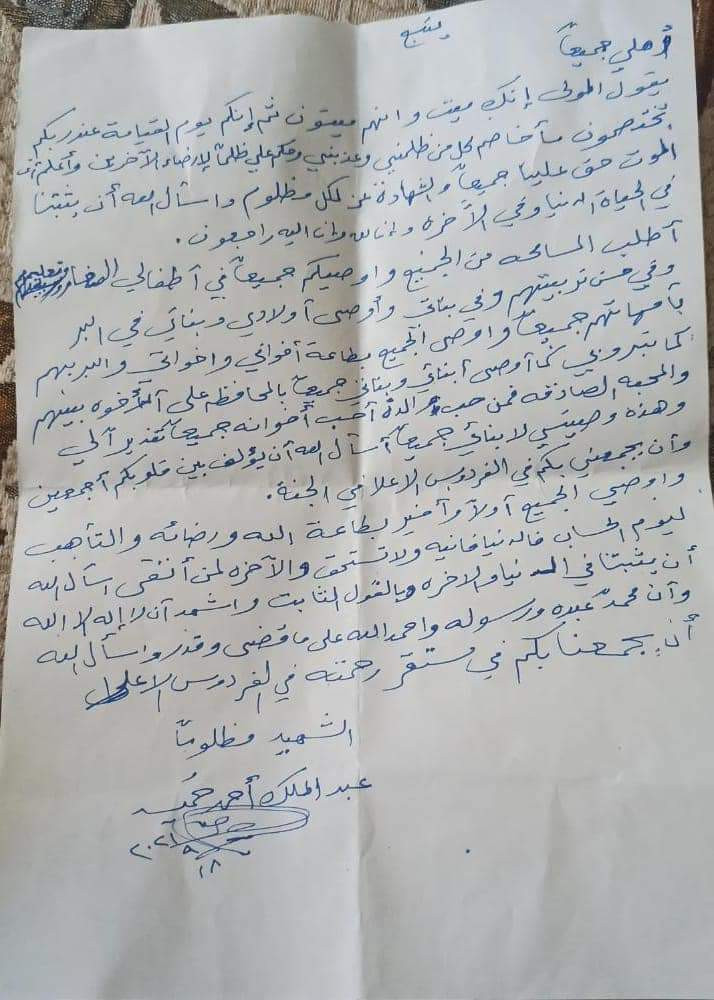 يتبع
أهلي جميعاً
يقول المولى إنك ميت وانهم ميتون ثم إنكم يوم القيامة عند ربكم
تختصمون سأخاصم كل من ظلمني وعذبني وحكم علي ظلماً لإرضاء الآخرين وأعلم أن
الموت حق علينا جميعاً والشهادة عز لكل مظلوم واسأل الله أن يثبتنا
في الحياة الدنيا وفي الآخرة وإنا لله وإنا اليه راجعون.
أطلب المسامحه من الجميع واوصيكم جميعاً في أطفالي الصغار وتعليمهم
وفي حسن تربيتهم وفي بناتي وأوصي أولادي وبناتي في البر
بأمهاتهم جميعاً واوصي الجميع بطاعة أخواني واخواتي والبر بهم
كما تبروني كما أوصي أبنائي وبناتي جميعاً بالمحافظه على الأخوه بينهم
والمحبه الصادقه فمن حب والدة أحب أخوانه جميعاً تقديراً لي
وهذه وصيتي لابنائي جميعاً أسأل الله أن يؤلف بين قلوبكم أجمعين
وأن يجمعني بكم في الفردوس الاعلا في الجنة.
واوصي الجميع أولاً وآخيراً بطاعة الله ورضائه والتأهب
ليوم الحساب فالدنيا فانيه ولا تستحق والآخره لمن أتقى اسأل الله
أن يثبتنا في الدنيا والاخره وبالقول الثابت واشهد أن لا إله إلا الله
وأن محمد عبده ورسوله واحمد الله على ما قضى وقدر واسأل الله
أن يجمعنا بكم في مستقر رحمته في الفردوس الاعلا
الشهيد مظلوماً
عبد الملك أحمد حميد
٢٠٢١/٩/١٨